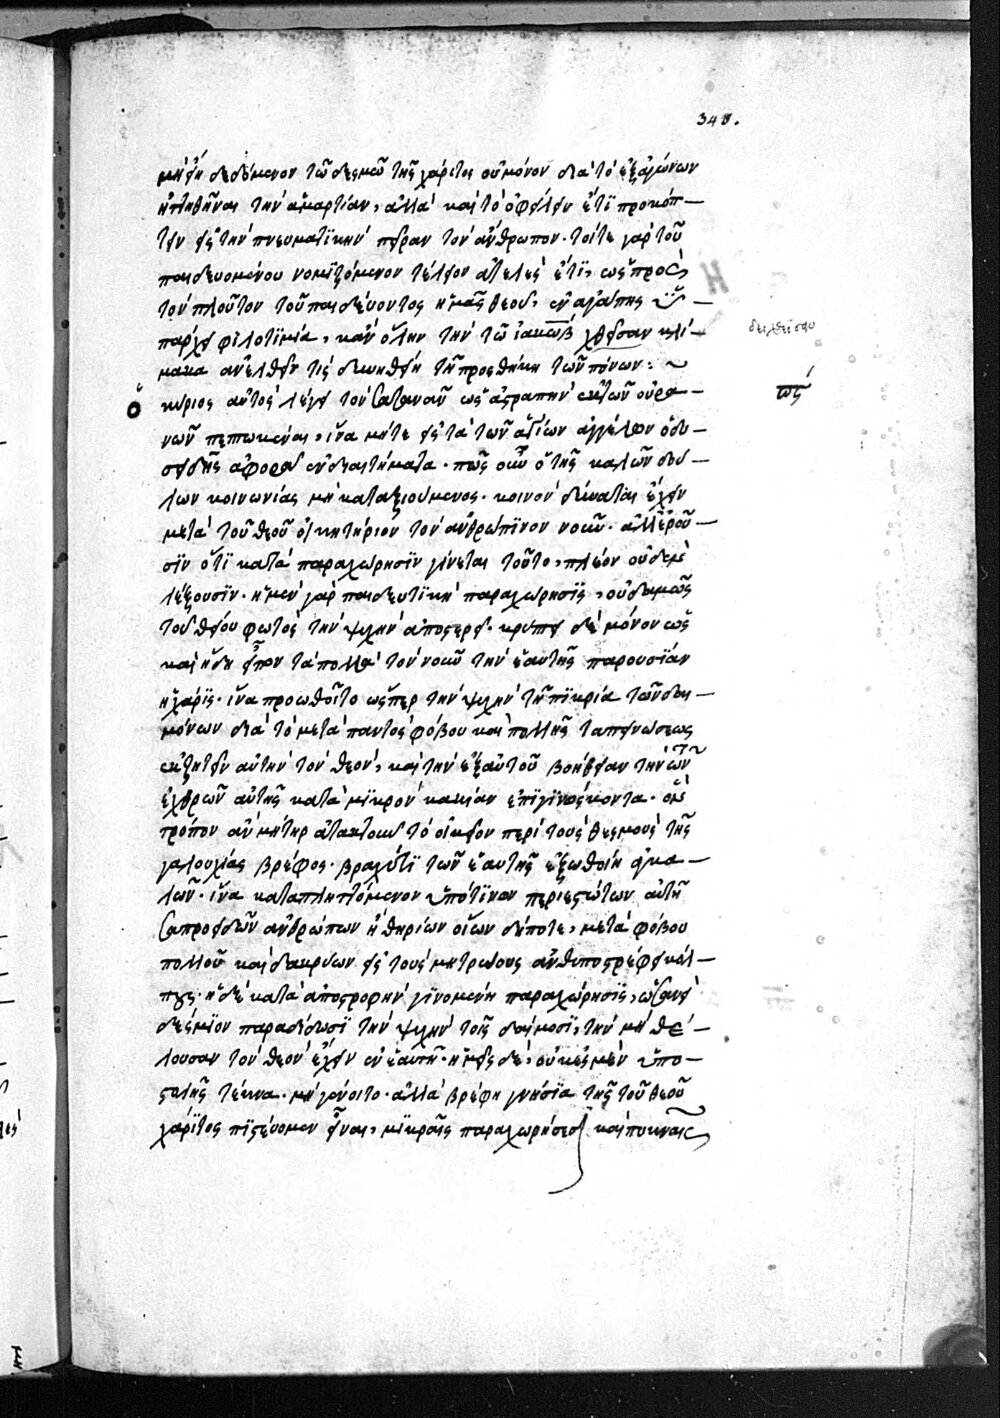 348.
μένη δεδεμένον τῶ δεσμῶ τῆς χάριτος οὐ μόνον διὰ τὸ ἐξ ἀγώνων
ἡττηθῆναι τὴν ἁμαρτίαν, ἀλλὰ καὶ τὸ ὀφείλειν ἔτι προκόπ-
τειν εἰς τὴν πνευματικὴν πεῖραν τὸν ἄνθρωπον. τότε γὰρ τοῦ
παιδευομένου νομιζόμενον τέλειον ἀτελὲς ἔτι, ὡς πρὸς
τὸν πλοῦτον τοῦ παιδεύοντος ἡμᾶς θεοῦ, ἐν ἀγάπης ὑ-
πάρχει φιλοτιμία, κἂν ὅλην τὴν τῶ ἰακὼβ χθεῖσαν κλί-
μακα ἀνελθεῖν τις δυνηθείη τῆ προσθήκη τῶν πόνων:
δειχθεῖσαν
ὁ
κύριος αὐτὸς λέγει τὸν σατανᾶν ὡς ἀστραπὴν ἐκ τῶν οὐρα-
νῶν πεπτωκέναι, ἵνα μήτε εἰς τὰ τῶν ἁγίων ἀγγέλων ὁ δυ-
σειδὴς ἀφορᾶ ἐνδιαιτήματα. πῶς οὖν ὁ τῆς καλῶν δού-
λων κοινωνίας μὴ καταξιούμενος. κοινὸν δύναται ἔχειν
μετὰ τοῦ θεοῦ οἰκητήριον τὸν ἀνθρώπινον νοῦν. ἀλλ' ἐροῦ-
σιν ὅτι κατὰ παραχώρησιν γίνεται τοῦτο, πλέον οὐδὲν
λέξουσιν. ἡ μὲν γὰρ παιδευτικὴ παραχώρησις, οὐδαμῶς
τοῦ θείου φωτὸς τὴν ψυχὴν ἀποστερεῖ. κρύπτει δὲ μόνον ὡς
καὶ ἤδη εἶπον τὰ πολλὰ τὸν νοῦν τὴν ἑαυτῆς παρουσίαν
ἡ χάρις. ἵνα προωθοῖτο ὥσπερ τὴν ψυχὴν τῆ πικρία τῶν δαι-
μόνων διὰ τὸ μετὰ παντὸς φόβου καὶ πολλῆς ταπεινώσεως
ἐκζητεῖν αὐτὴν τὸν θεὸν, καὶ τὴν ἐξ αὐτοῦ βοήθειαν τὴν τῶν
ἐχθρῶν αὐτῆς κατὰ μικρὸν κακίαν ἐπιγινώσκοντα. ὃν
τρόπον ἂν μήτηρ ἀτακτοῦν τὸ οἰκεῖον περὶ τοὺς θεσμοὺς τῆς
γαλουχίας βρέφος. βραχύτι τῶν ἑαυτῆς ἐξωθοίη ἀγκα-
λῶν. ἵνα καταπληττόμενον ὑπό τινων περιεστώτων αὐτῆ
σαπροειδῶν ἀνθρώπων ἢ θηρίων οἵων δήποτε, μετὰ φόβου
πολλοῦ καὶ δακρύων εἰς τοὺς μητρώους ἀνθυποστρέφει κόλ-
πους. ἡ δὲ κατὰ ἀποστροφὴν γινομένη παραχώρησις, ὡσανεὶ
δέσμιον παραδίδωσι τὴν ψυχὴν τοῖς δαίμοσι, τὴν μὴ θέ-
λουσαν τὸν θεὸν ἔχειν ἐν ἑαυτῆ. ἡμεῖς δὲ, οὐκ ἐσμὲν ὑπο-
στολῆς τέκνα. μὴ γένοιτο. ἀλλὰ βρέφη γνήσια τῆς τοῦ θεοῦ
χάριτος πιστεύομεν εἶναι, μικραῖς παραχωρήσεσι καὶ πυκναῖς